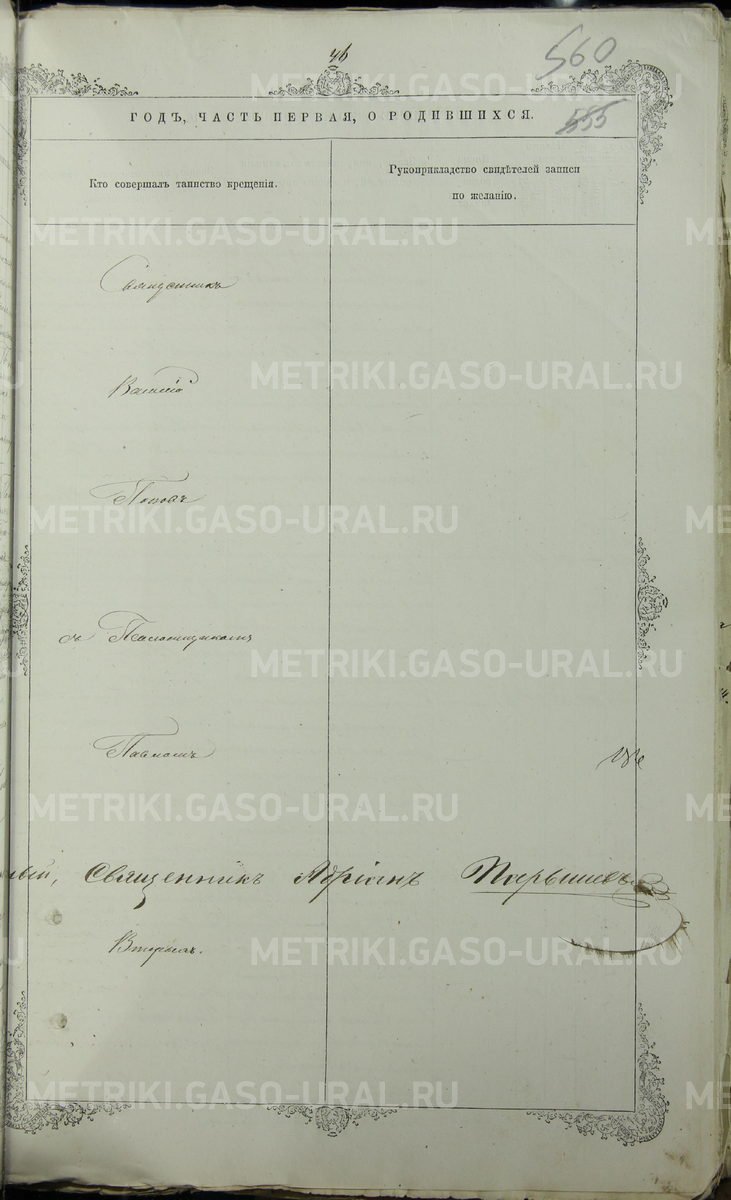 46
560
ГОДЪ, ЧАСТЬ ПЕРВАЯ, О РОДИВШИХСЯ.
555
Кто совершалъ таинство крещенія.
Рукоприкладство свидѣтелей записи
по желанію.
Священникъ
Василій
Поповъ
съ Псаломщикомъ
Павломъ
Священникъ Адріанъ
Вторымъ.
METRIKI.GASO-URAL.RU